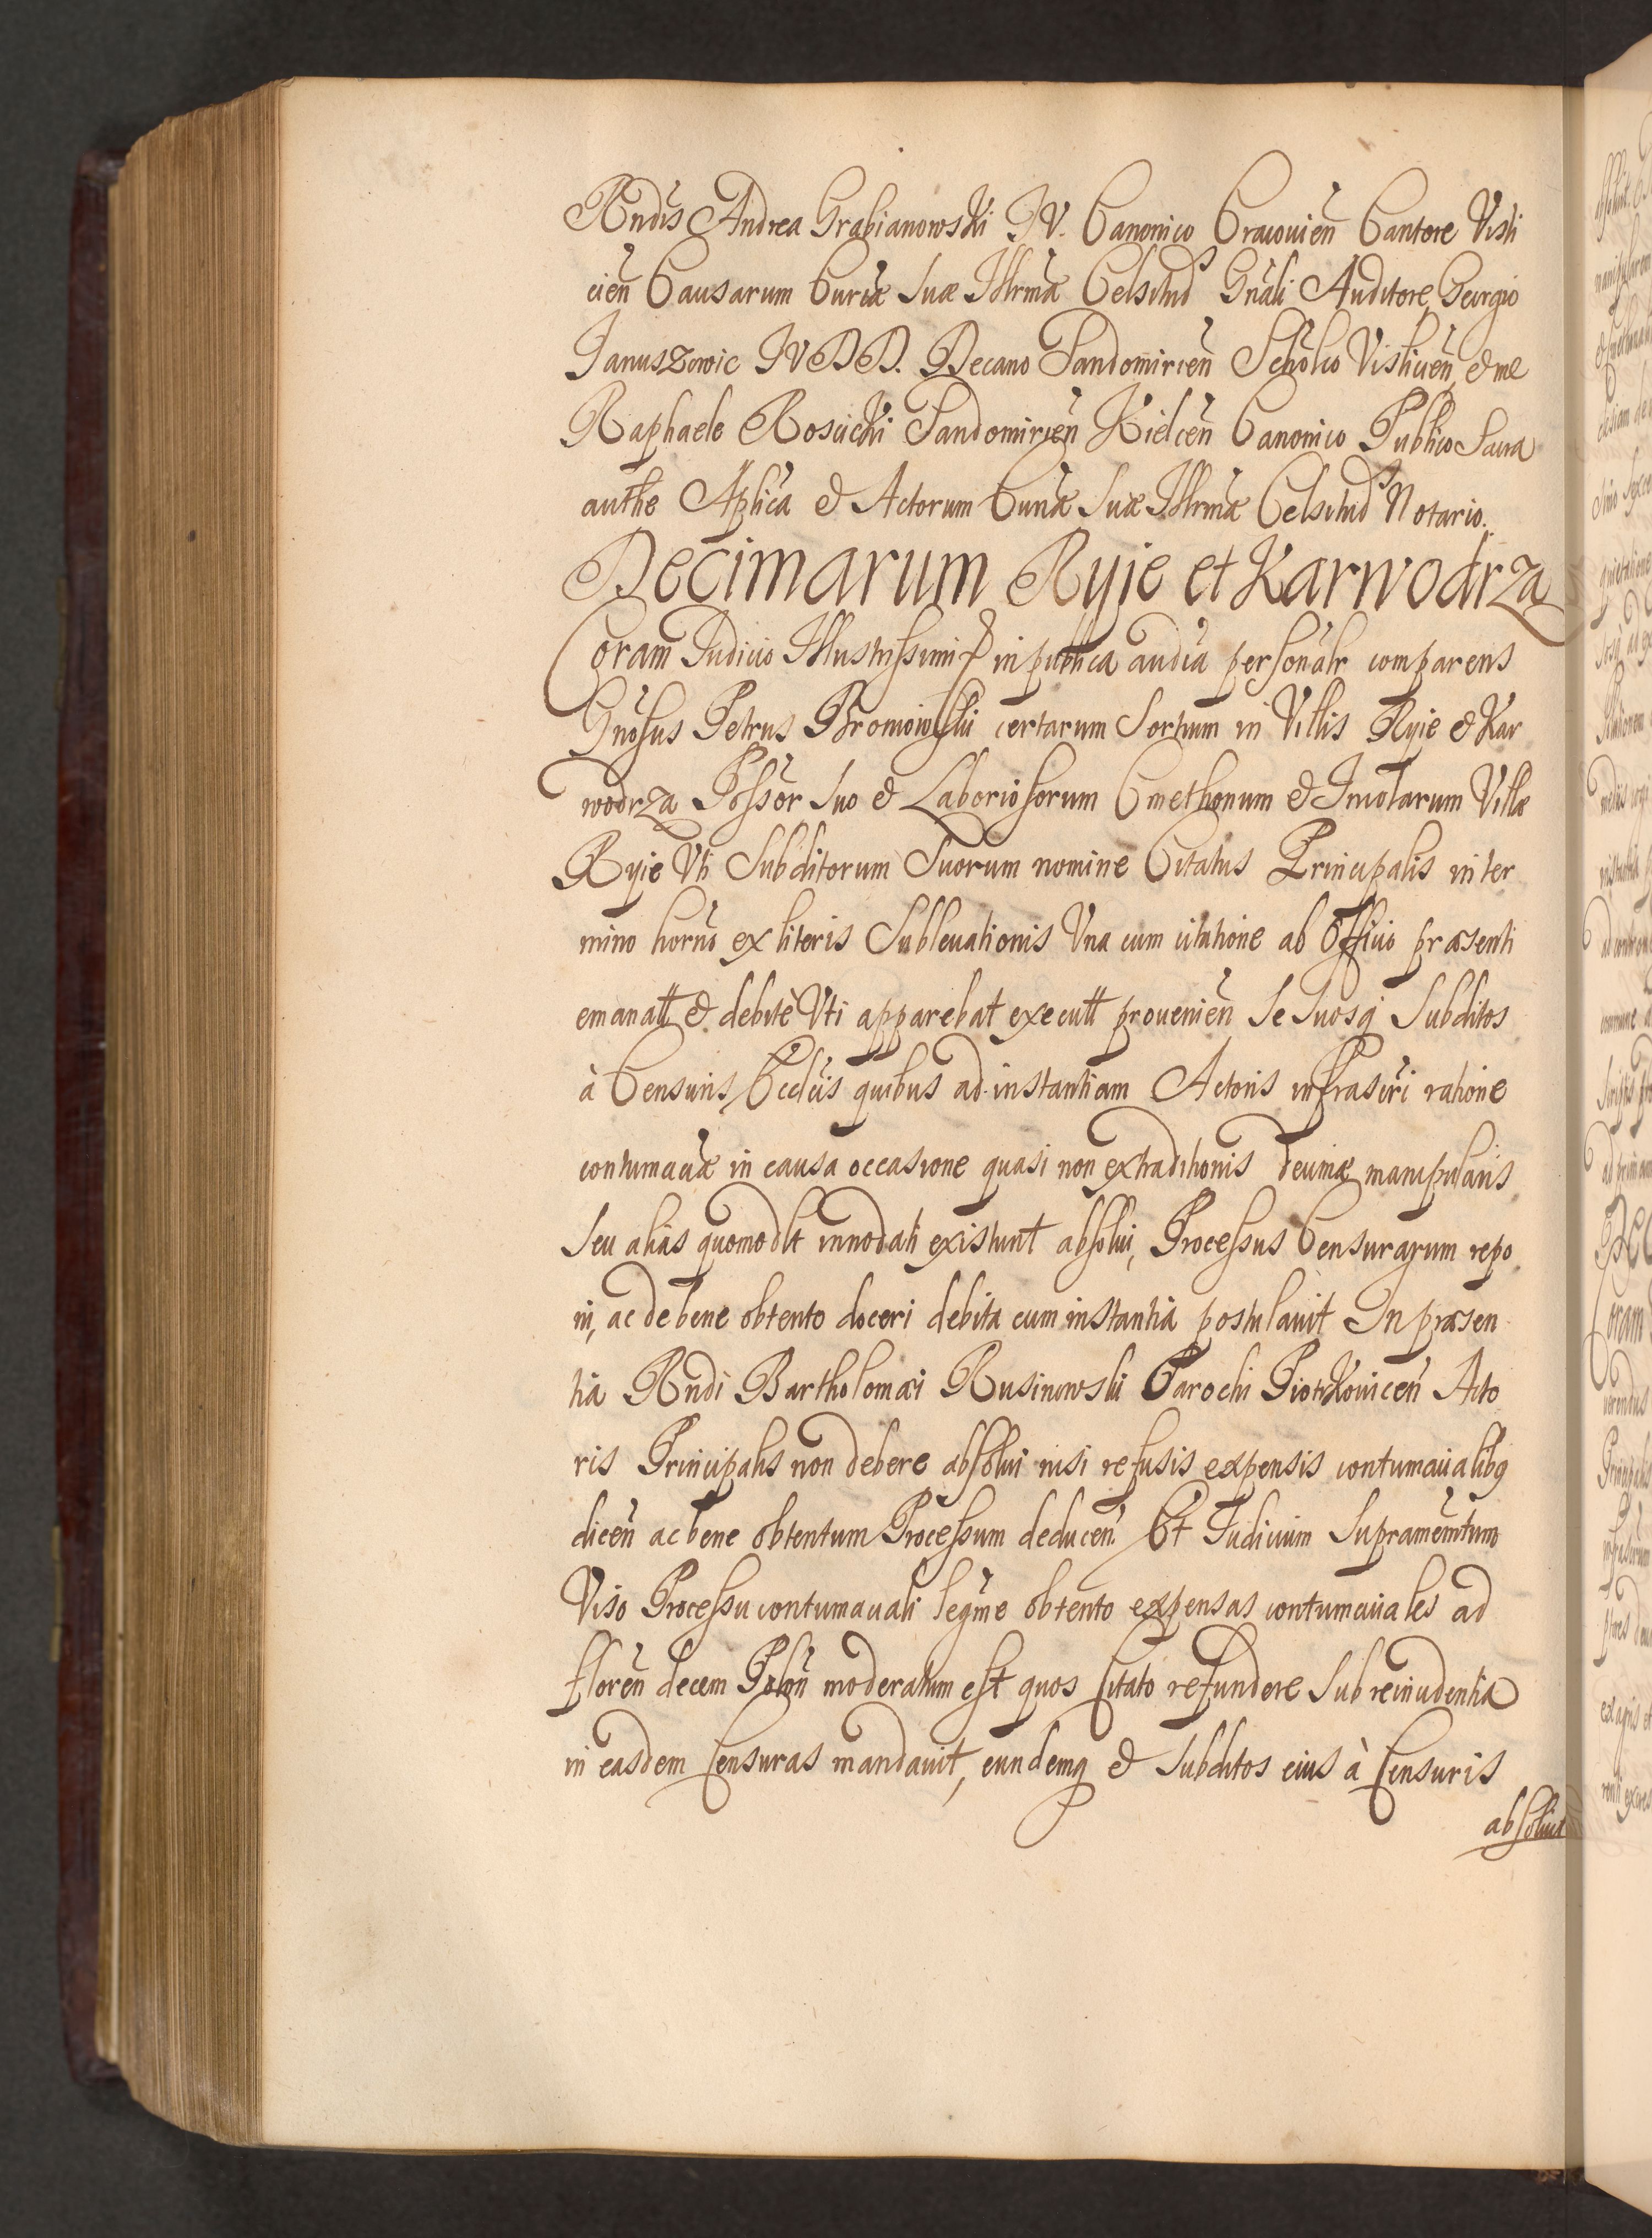 Rndis Andrea Grabianowski IV. Canonico Cracouien Cantore Visli
cien Causarum Curiæ Suæ Illrmæ Celsitud Gnali Auditore, Georgio
Januszowic IVDD. Decano Sandomirien Scholco Vislicien, & me
Raphaele Rosicki Sandomirien Kielcen Canonico Publico Sacra
authe Aplica & Actorum Curiæ Suæ Illrmæ Celsitud Notario.
Decimarum Ryie et Karwodrza
Coram Judicio Illustrissimi & in publica audia personalr comparens
Gnosus Petrus Bromowski certarum Sortium in Villis Ryie & Kar
wodrza Possor Suo & Laboriosorum Cmethonum & Incolarum Villæ
Ryie Vti Subditorum Suorum nomine Citatus Principalis in ter
mino horno ex literis Subleuationis Vna cum citatione ab Officio præsenti
emanatt & debitè Vti apparebat executt prouenien Se Suosq Subditos
à Censuris Eccleis quibus ad instantiam Actoris infrascri ratione
contumaciæ in causa occasione quasi non extraditionis decimæ manipularis
Seu alias quomodlt innodati existunt absolui, Processus Censurarum repo
ni, ac de bene obtento doceri debita cum instantia postulauit In præsen
tia Rndi Bartholomæi Rusinowski Parochi Piotrkouicen Acto
ris Principalis non debere absolui nisi refusis expensis contumacialibq
dicen ac bene obtentum Processum deducen. Et Judicium Supramemtum
Viso Processu contumaciali legme obtento expensas contumaciales ad
floren decem Polon moderatum est quos Citato refundere Sub reincidentia
in easdem Censuras mandauit, eundemq & Subditos eius à Censuris
absoluit